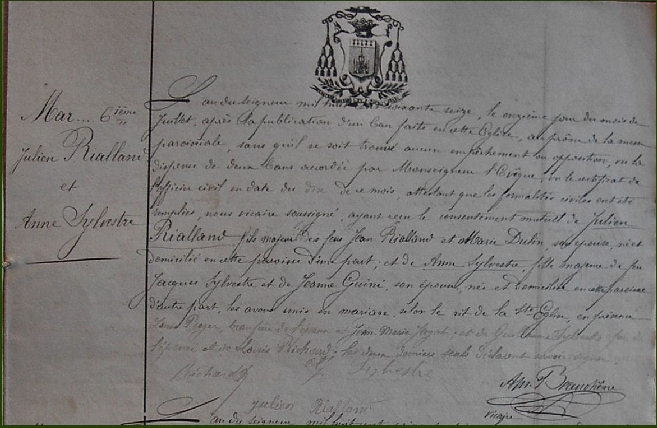 Mar... 6ième
Julien Rialland
et
Anne Sylvestre
L'an du seigneur mil huit soixante seize, le onzième jour du mois de
Juillet, après la publication d'un ban faite en cette Eglise, au prône de la messe
paroissiale, sans qu'il se soit trouvé aucun empêchement ou opposition, vu la
dispense de deux bans accordée par Monseigneur l'Evêque, vu le certificat de
l'officier civil en date du dix de ce mois, attestant que les formalités civiles ont été
remplies, nous vicaire soussigné, ayant reçu le consentement mutuel de Julien
Rialland fils majeur de feu Jean Rialland et Marie Dutin, son épouse, né et
domicilié en cette paroisse d'une part; et de Anne Sylvestre fille majeure de feu
Jacques Sylvestre et de Jeanne Guiné, son épouse, née et domiciliée en cette paroisse
d'autre part, les avons unis en mariage, selon le rit de la Ste Eglise, en présence
Jean Marie et de Guillaume Sylvestre
et de Louis Richard
Richard Sylvestre
Julien Rialland
vicaire
L'an du seigneur mil huit